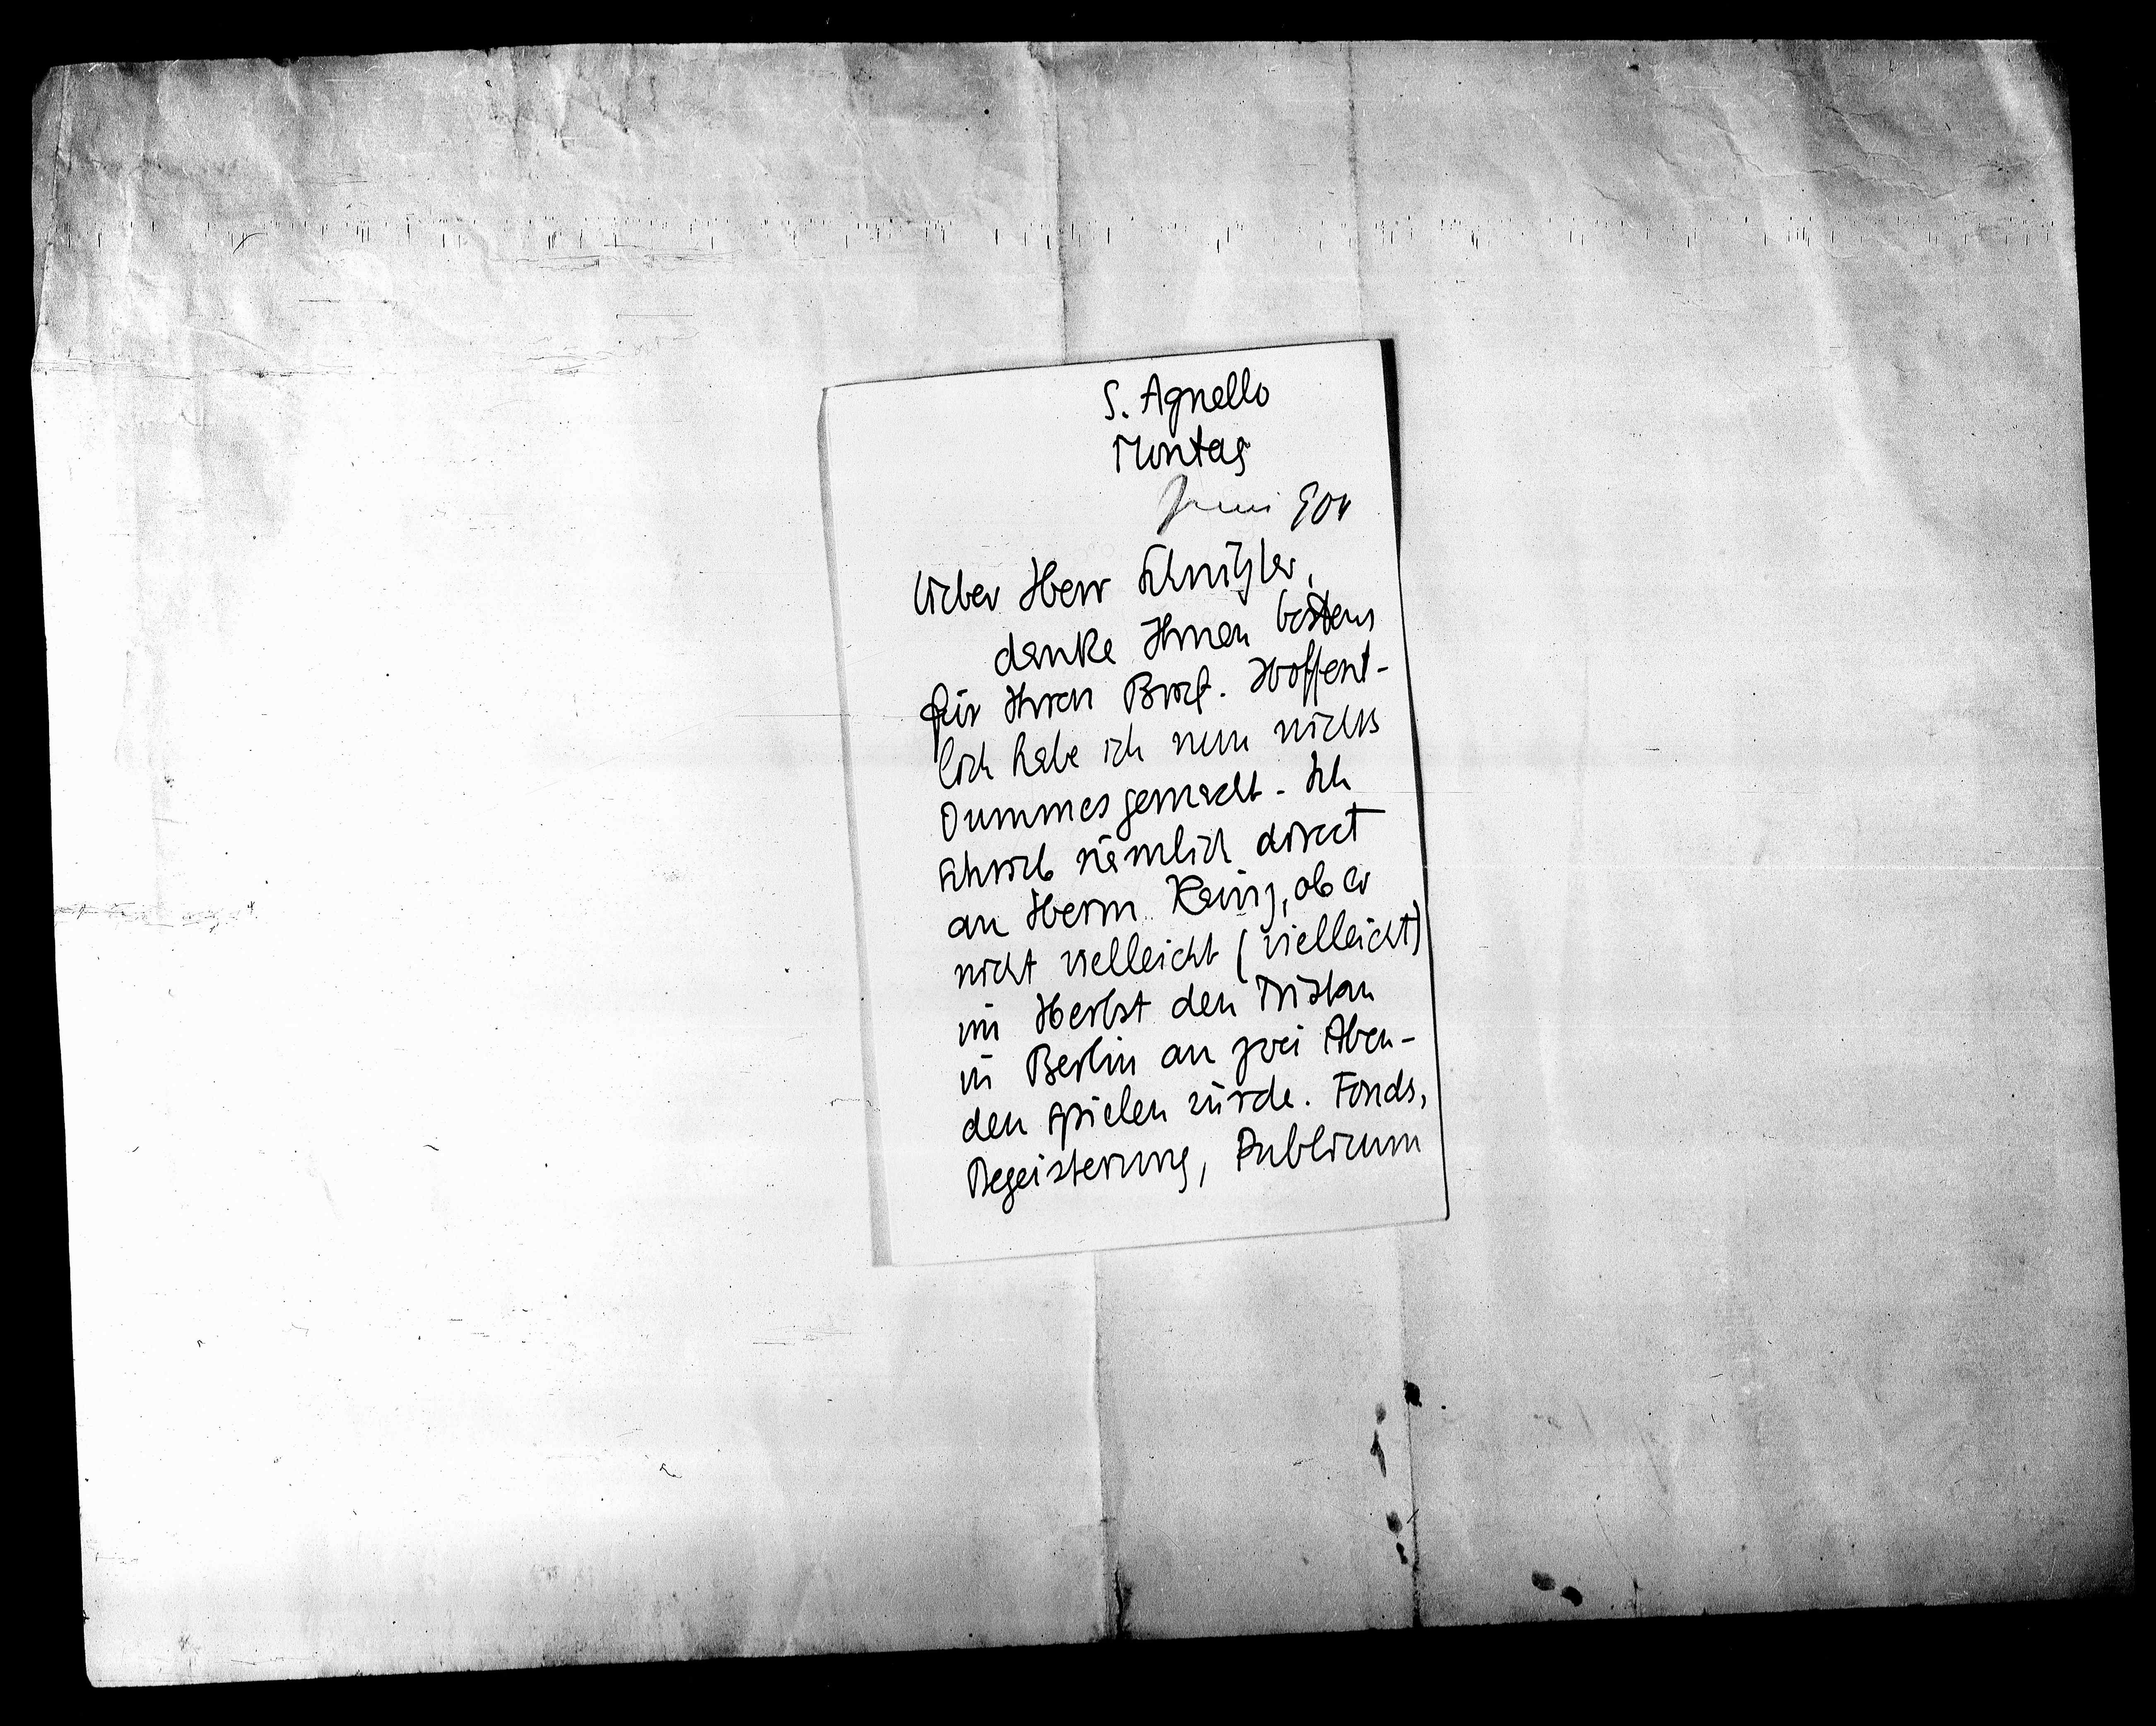 S. Agnello
Montag
Juni 904
Lieber Herr Schnitzler,
danke Ihnen bestens
für Ihren Brief. Hoffent-
lich habe ich nun nichts
Dummes gemacht. Ich
schrieb nämlich direct
an Herrn Kainz, ob er
nicht vielleicht (vielleicht)
im Herbst den Tristan
in Berlin an zwei Aben-
den spielen würde. Fonds,
Begeisterung, Publicum